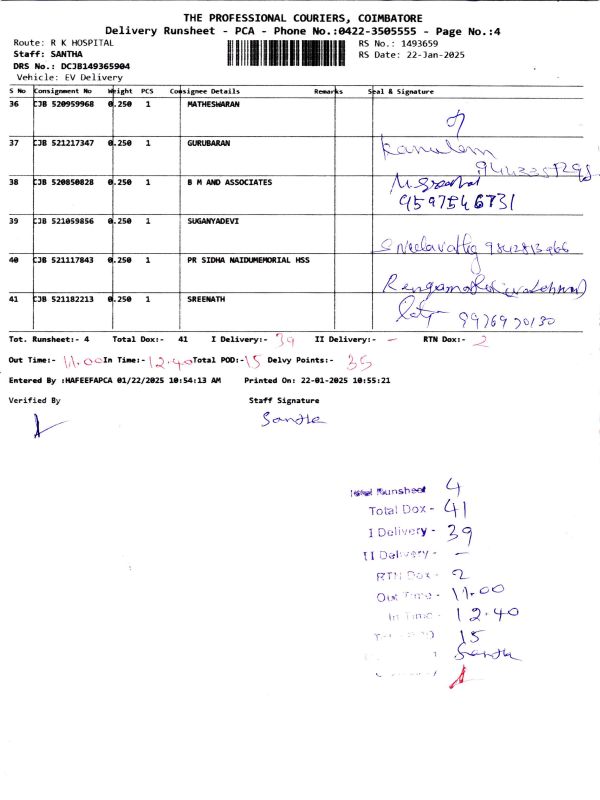 THE PROFESSIONAL COURIERS, COIMBATORE
Delivery Runsheet - PCA - Phone No.:0422-3505555 - Page No.:4
Route: R K HOSPITAL
RS No.: 1493659
Staff: SANTHA
RS Date: 22-Jan-2025
DRS No.: DCJB149365904
Vehicle: EV Delivery
S No Consignment No Weight PCS Consignee Details Remarks Seal & Signature
36 CJB 520959968 0.250 1 MATHESWARAN
37 CJB 521217347 0.250 1 GURUBARAN
38 CJB 520850828 0.250 1 B M AND ASSOCIATES
9597546731
39 CJB 521059856 0.250 1 SUGANYADEVI
40 CJB 521117843 0.250 1 PR SIDHA NAIDUMEMORIAL HSS
41 CJB 521182213 0.250 1 SREENATH
Tot. Runsheet:- 4 Total Dox:- 41 I Delivery:- 39 II Delivery:- - RTN Dox:- 2
Out Time:- 11.00 In Time:- 12.40 Total POD:- 15 Delvy Points:- 35
Entered By :HAFEEFAPCA 01/22/2025 10:54:13 AM Printed On: 22-01-2025 10:55:21
Verified By Staff Signature
Santha
Total Runsheet 4
Total Dox - 41
I Delivery - 39
II Delivery - -
RTN Dox - 2
Out Time - 11.00
In Time - 12.40
15
Santha